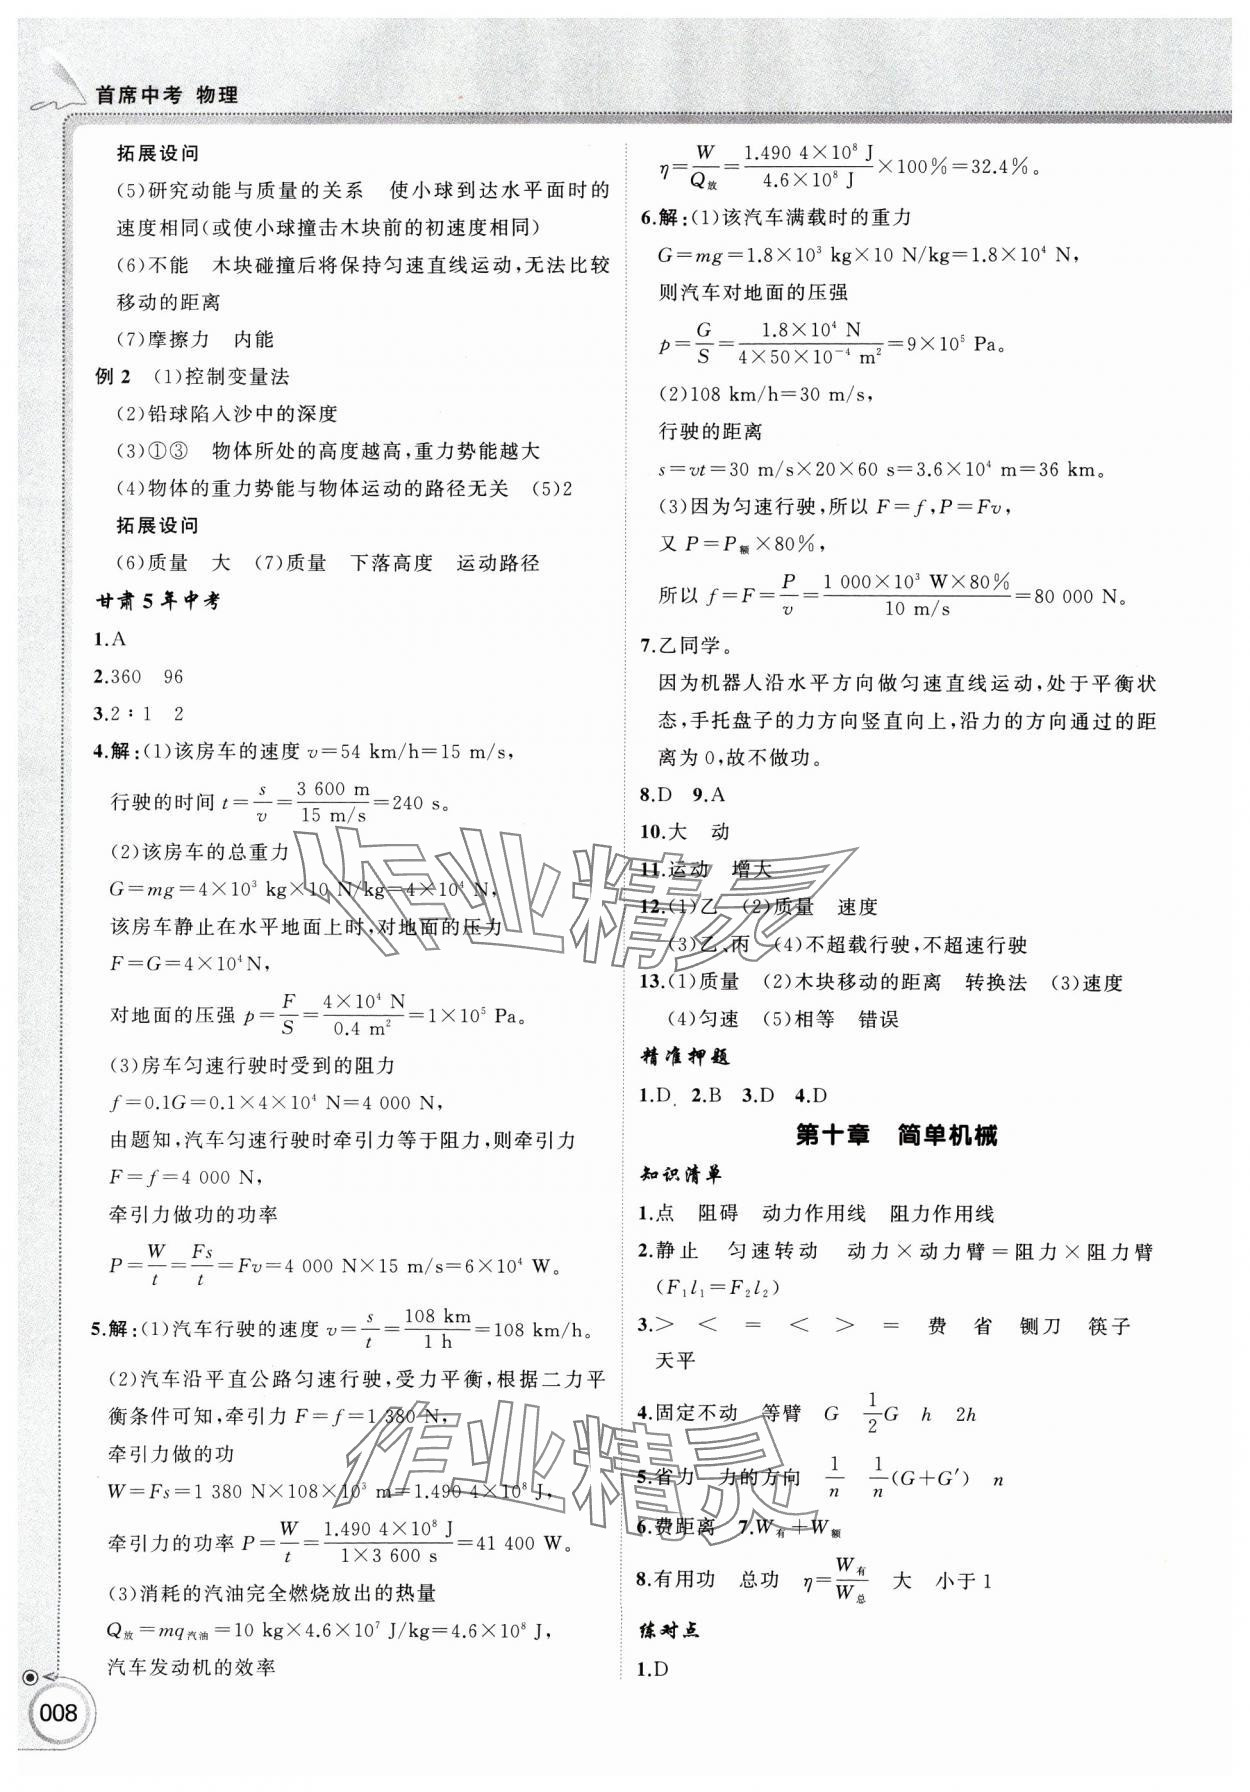 首席中考 物理
拓展设问
(5)研究动能与质量的关系 使小球到达水平面时的
速度相同(或使小球撞击木块前的初速度相同)
(6)不能 木块碰撞后将保持匀速直线运动,无法比较
移动的距离
(7)摩擦力 内能
例2 (1)控制变量法
(2)铅球陷入沙中的深度
(3)①③ 物体所处的高度越高,重力势能越大
(4)物体的重力势能与物体运动的路径无关 (5)2
拓展设问
(6)质量 大 (7)质量 下落高度 运动路径
甘肃5年中考
1.A
2.360 96
3.2∶1 2
4.解:(1)该房车的速度 v=54 km/h=15 m/s,
行驶的时间 t=s/v=3 600 m/15 m/s=240 s。
(2)该房车的总重力
G=mg=4×10³ kg×10 N/kg=4×10⁴ N,
该房车静止在水平地面上时,对地面的压力
F=G=4×10⁴N,
对地面的压强 p=F/S=4×10⁴ N/0.4 m²=1×10⁵ Pa。
(3)房车匀速行驶时受到的阻力
f=0.1G=0.1×4×10⁴ N=4 000 N,
由题知,汽车匀速行驶时牵引力等于阻力,则牵引力
F=f=4 000 N,
牵引力做功的功率
P=W/t=Fs/t=Fv=4 000 N×15 m/s=6×10⁴ W。
5.解:(1)汽车行驶的速度 v=s/t=108 km/1 h=108 km/h。
(2)汽车沿平直公路匀速行驶,受力平衡,根据二力平
衡条件可知,牵引力 F=f=1 380 N,
牵引力做的功
W=Fs=1 380 N×108×10³ m=1.490 4×10⁸ J,
牵引力的功率 P=W/t=1.490 4×10⁸ J/1×3 600 s=41 400 W。
(3)消耗的汽油完全燃烧放出的热量
Q放=mq汽油=10 kg×4.6×10⁷ J/kg=4.6×10⁸ J,
汽车发动机的效率
η=W/Q放=1.490 4×10⁸ J/4.6×10⁸ J×100%=32.4%。
6.解:(1)该汽车满载时的重力
G=mg=1.8×10³ kg×10 N/kg=1.8×10⁴ N,
则汽车对地面的压强
p=G/S=1.8×10⁴ N/4×50×10⁻⁴ m²=9×10⁵ Pa。
(2)108 km/h=30 m/s,
行驶的距离
s=vt=30 m/s×20×60 s=3.6×10⁴ m=36 km。
(3)因为匀速行驶,所以 F=f,P=Fv,
又 P=P额×80%,
所以 f=F=P/v=1 000×10³ W×80%/10 m/s=80 000 N。
7.乙同学。
因为机器人沿水平方向做匀速直线运动,处于平衡状
态,手托盘子的力方向竖直向上,沿力的方向通过的距
离为0,故不做功。
8.D 9.A
10.大 动
11.运动 增大
12.(1)乙 (2)质量 速度
(3)乙、丙 (4)不超载行驶,不超速行驶
13.(1)质量 (2)木块移动的距离 转换法 (3)速度
(4)匀速 (5)相等 错误
精准押题
1.D 2.B 3.D 4.D
第十章 简单机械
知识清单
1.点 阻碍 动力作用线 阻力作用线
2.静止 匀速转动 动力×动力臂=阻力×阻力臂
(F₁l₁=F₂l₂)
3.> < = < > = 费 省 铡刀 筷子
天平
4.固定不动 等臂 G 1/2G h 2h
5.省力 力的方向 1/n 1/n(G+G′) n
6.费距离 7.W有+W额
8.有用功 总功 η=W有/W总 大 小于1
练对点
1.D
008
作业精灵
作业精灵